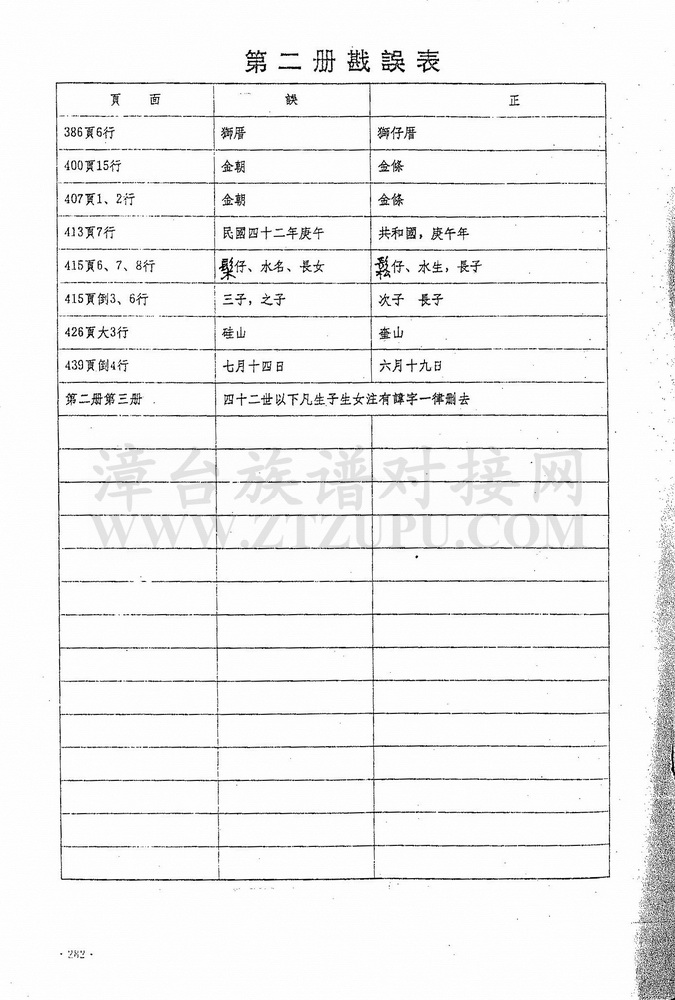 第二册戡誤表
頁面 誤 正
386頁6行 獅厝 獅仔厝
400頁15行 金朝 金條
407頁1、2行 金朝 金條
413頁7行 民國四十二年庚午 共和國，庚午年
415頁6、7、8行 仔、水名、長女 鬆仔、水生，長子
415頁倒3、6行 三子，之子 次子 長子
426頁大3行 硅山 奎山
439頁倒4行 七月十四日 六月十九日
第二册第三册 四十二世以下凡生子生女注有諱字一律删去
漳台族谱对接网
WWW.ZTZUPU.COM
·282·